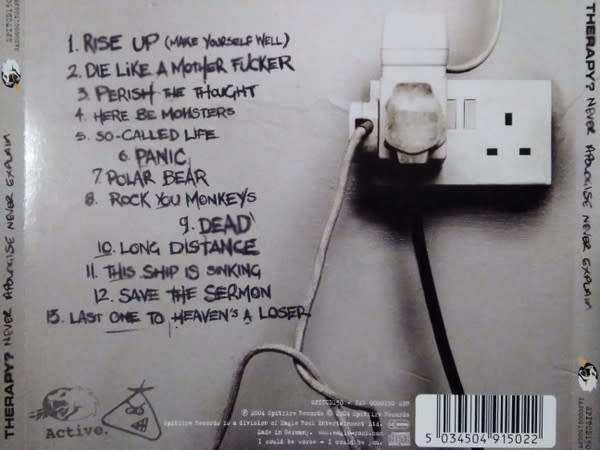 1. RISE UP (MAKE YOURSELF WELL)
2. DIE LIKE A MOTHER FUCKER
3. PERISH THE THOUGHT
4. HERE BE MONSTERS
5. SO-CALLED LIFE
6. PANIC
7. POLAR BEAR
8. ROCK YOU MONKEYS
9. DEAD
10. LONG DISTANCE
11. THIS SHIP IS SINKING
12. SAVE THE SERMON
13. LAST ONE TO HEAVEN'S A LOSER
THERAPY? NEVER APOLOGISE NEVER EXPLAIN
THERAPY? NEVER APOLOGISE NEVER EXPLAIN
SPITCD150
SPITCD150
Active.
SPITCD150
℗ 2004 Spitfire Records © 2004 Spitfire Records
Spitfire Records is a division of Eagle Rock Entertainment Ltd.
Made in Germany. www.eagle-rock.com
I could be worse - I could be you.
5 034504 915022